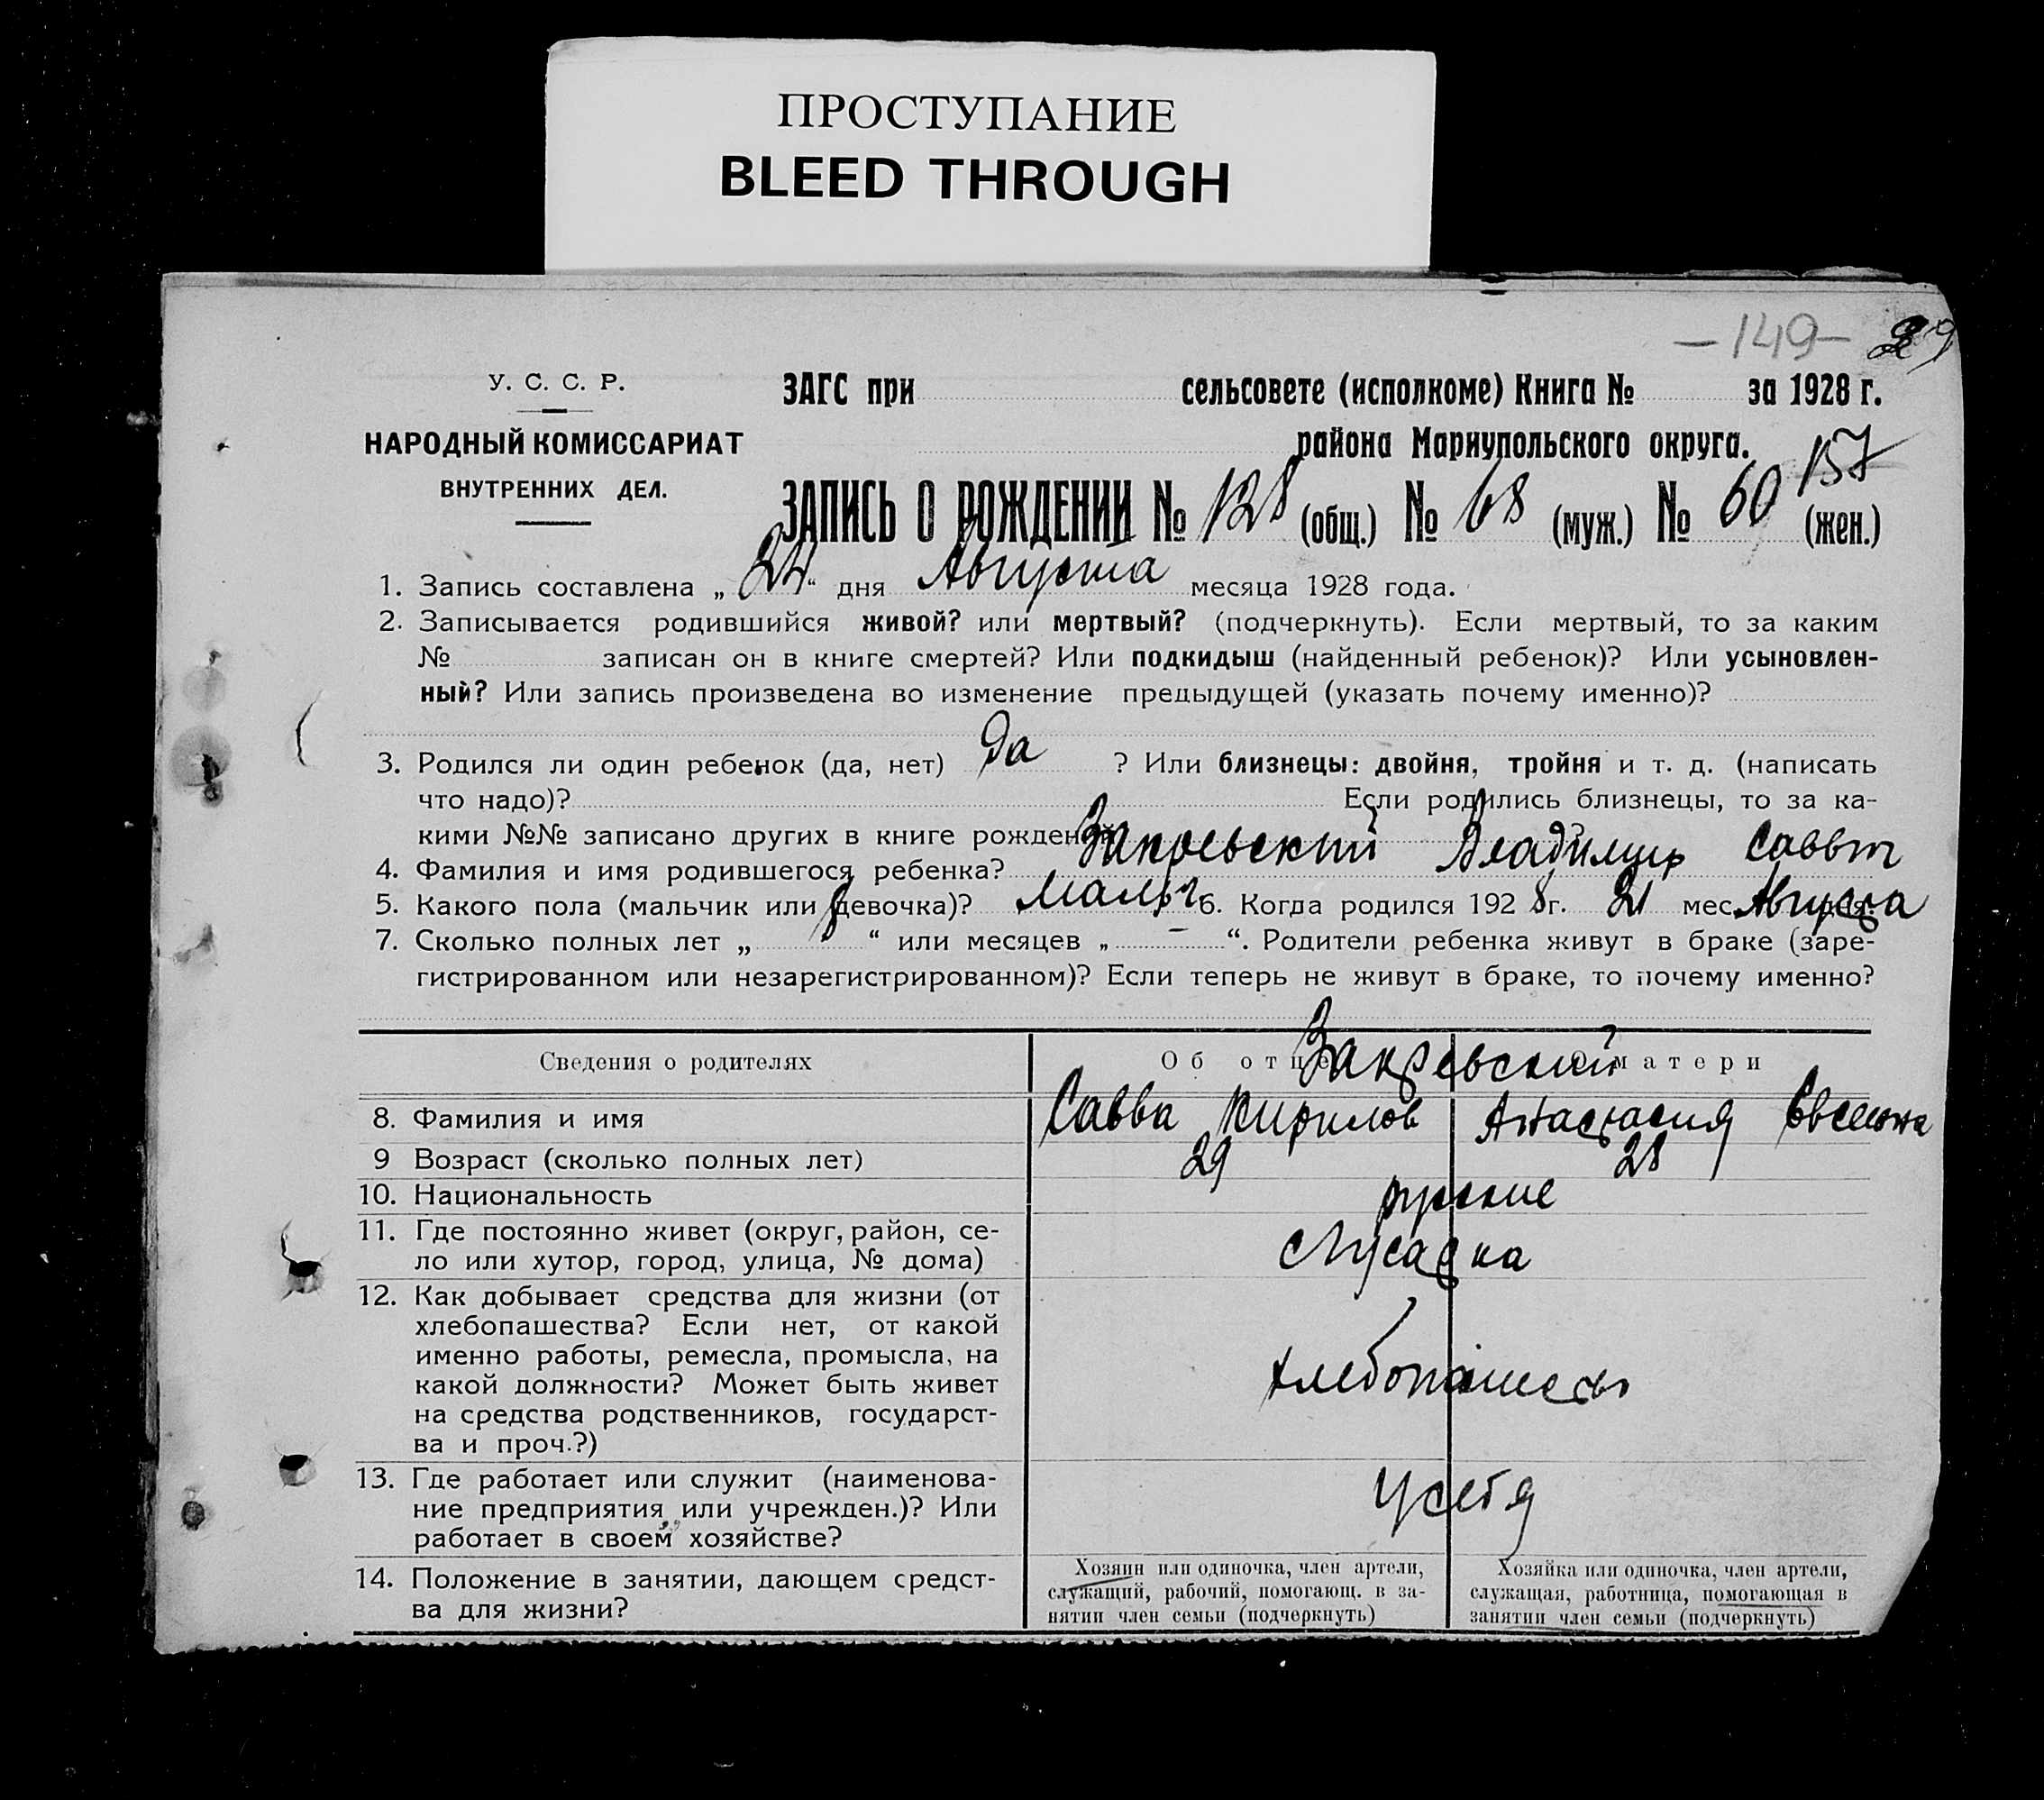 ПРОСТУПАНИЕ
BLEED THROUGH
— 149 —
У. С. С. Р.
НАРОДНЫЙ КОМИССАРИАТ
ВНУТРЕННИХ ДЕЛ.
ЗАГС при сельсовете (исполкоме) Книга № за 1928 г.
района Мариупольского округа.
157
ЗАПИСЬ О РОЖДЕНИИ № 128 (общ.) № 68 (муж.) № 60 (жен.)
1. Запись составлена „ 24 “ дня Августа месяца 1928 года.
2. Записывается родившийся живой? или мертвый? (подчеркнуть). Если мертвый, то за каким
№ записан он в книге смертей? Или подкидыш (найденный ребенок)? Или усыновлен-
ный? Или запись произведена во изменение предыдущей (указать почему именно)?
3. Родился ли один ребенок (да, нет) да ? Или близнецы: двойня, тройня и т. д. (написать
что надо)? Если родились близнецы, то за ка-
кими №№ записано других в книге рождений?
4. Фамилия и имя родившегося ребенка? Закревский Владимир Саввит
5. Какого пола (мальчик или девочка)? Мальч. 6. Когда родился 192 8 г. 21 мес. Августа дня.
7. Сколько полных лет „ “ или месяцев „ – “. Родители ребенка живут в браке (заре-
гистрированном или незарегистрированном)? Если теперь не живут в браке, то почему именно?
Сведения о родителях Об отце О матери
Закревский
8. Фамилия и имя Савва Кирилов Анастасия
9 Возраст (сколько полных лет) 29 28
10. Национальность русские
11. Где постоянно живет (округ, район, се-
ло или хутор, город, улица, № дома)
12. Как добывает средства для жизни (от
хлебопашества? Если нет, от какой
именно работы, ремесла, промысла, на
какой должности? Может быть живет
на средства родственников, государст-
ва и проч.?)
хлебопашество
13. Где работает или служит (наименова-
ние предприятия или учрежден.)? Или
работает в своем хозяйстве?
у себя
14. Положение в занятии, дающем средст-
ва для жизни?
Хозяин или одиночка, член артели,
служащий, рабочий, помогающ. в за-
нятии член семьи (подчеркнуть)
Хозяйка или одиночка, член артели,
служащая, работница, помогающая в
занятии член семьи (подчеркнуть)